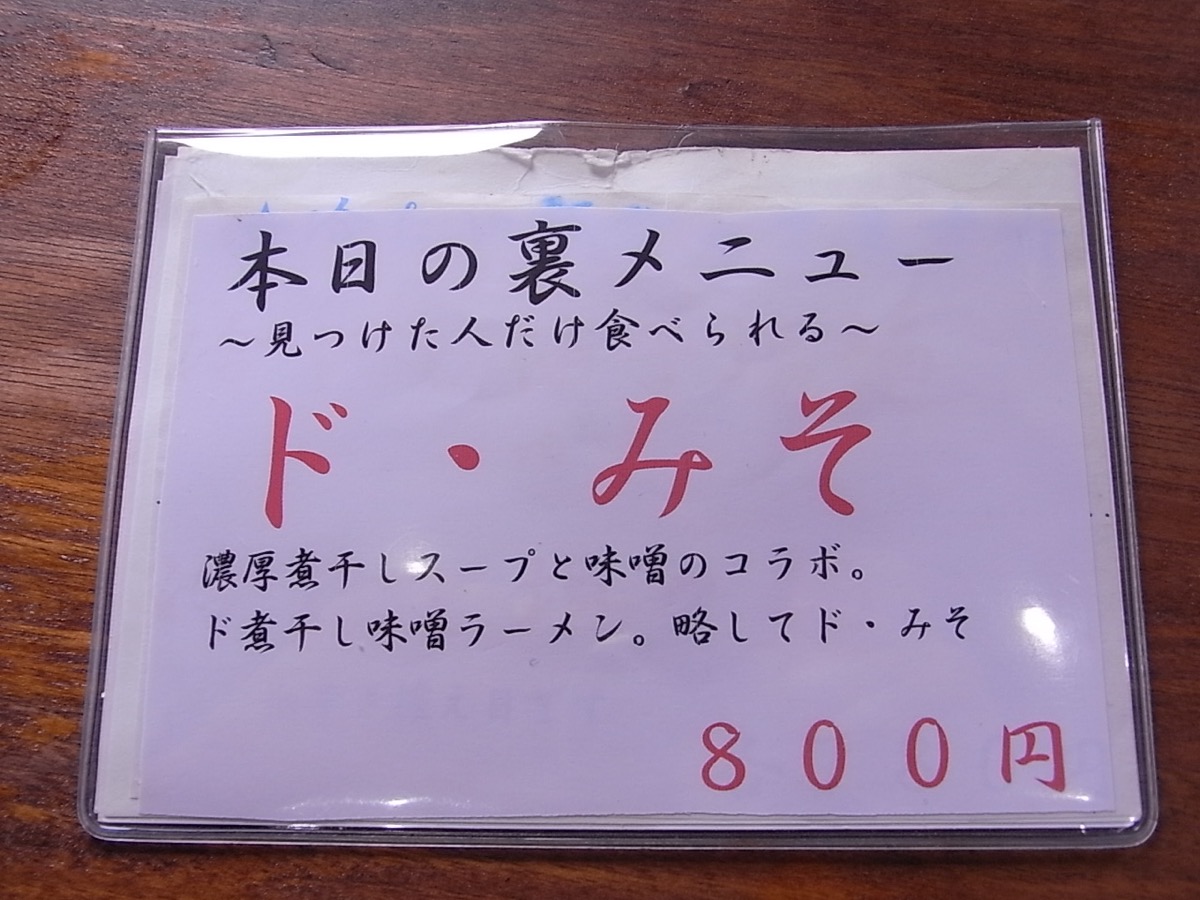 本日の裏メニュー
～見つけた人だけ食べられる～
ド・みそ
濃厚煮干しスープと味噌のコラボ。
ド煮干し味噌ラーメン。略してド・みそ
８００円